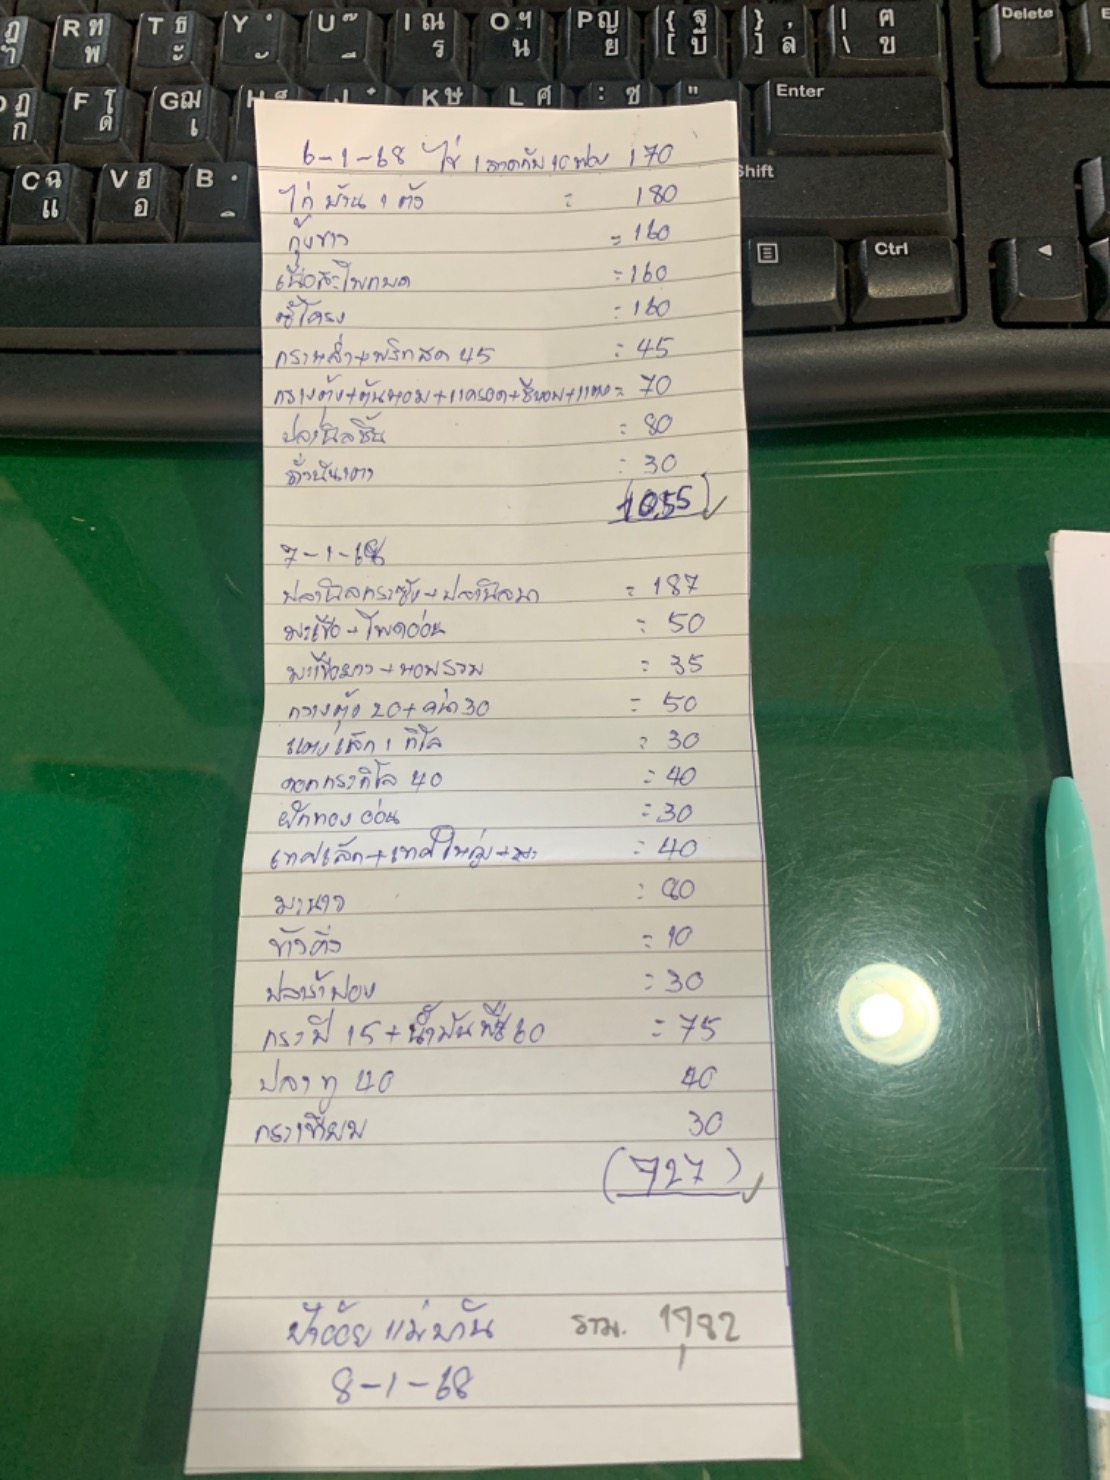 R ท พ
T ธ ะ
Y
U
I ณ ร
O ฯ น
P ญ ย
{ [ ฐ บ
} ] , ล
| \ ฅ ข
Delete
F โ ด
G ฌ เ
K ษ
L ศ
: ซ
"
Enter
C ฉ แ
V ฮ อ
B
Shift
Ctrl
6-1-68 ไข่ 1 ลาด 170
ไก่บ้าน 1 ตัว = 180
กุ้งขาว = 160
เนื้อสะโพกบด = 160
ซี่โครง = 160
กะหล่ำ+พริกสด 45 = 45
กวางตุ้ง+ต้นหอม+แครอด+ชีหอม+แตง = 70
ปลานิลชิ้น = 80
ถั่วฝักยาว = 30
(1055)
7-1-68
ปลานิลกระชัง+ปลานิลนา = 187
มะเขือ+โพดอ่อน = 50
มะเขือยาว+หอมรวม = 35
กวางตุ้ง 20+คน้า 30 = 50
แตงเล็ก 1 กิโล = 30
ดอกกระกิโล 40 = 40
ฟักทองอ่อน = 30
เทศเล็ก+เทศใหญ่+ = 40
มะนาว = 80
ข้าวคั่ว = 10
ปลาร้าผอง = 30
กระปิ 15+น้ำมันพืช 60 = 75
ปลาทู 40 40
กระเทียม 30
(727)
ป้าอ้อย แม่บ้าน รวม. 1,782
8-1-68